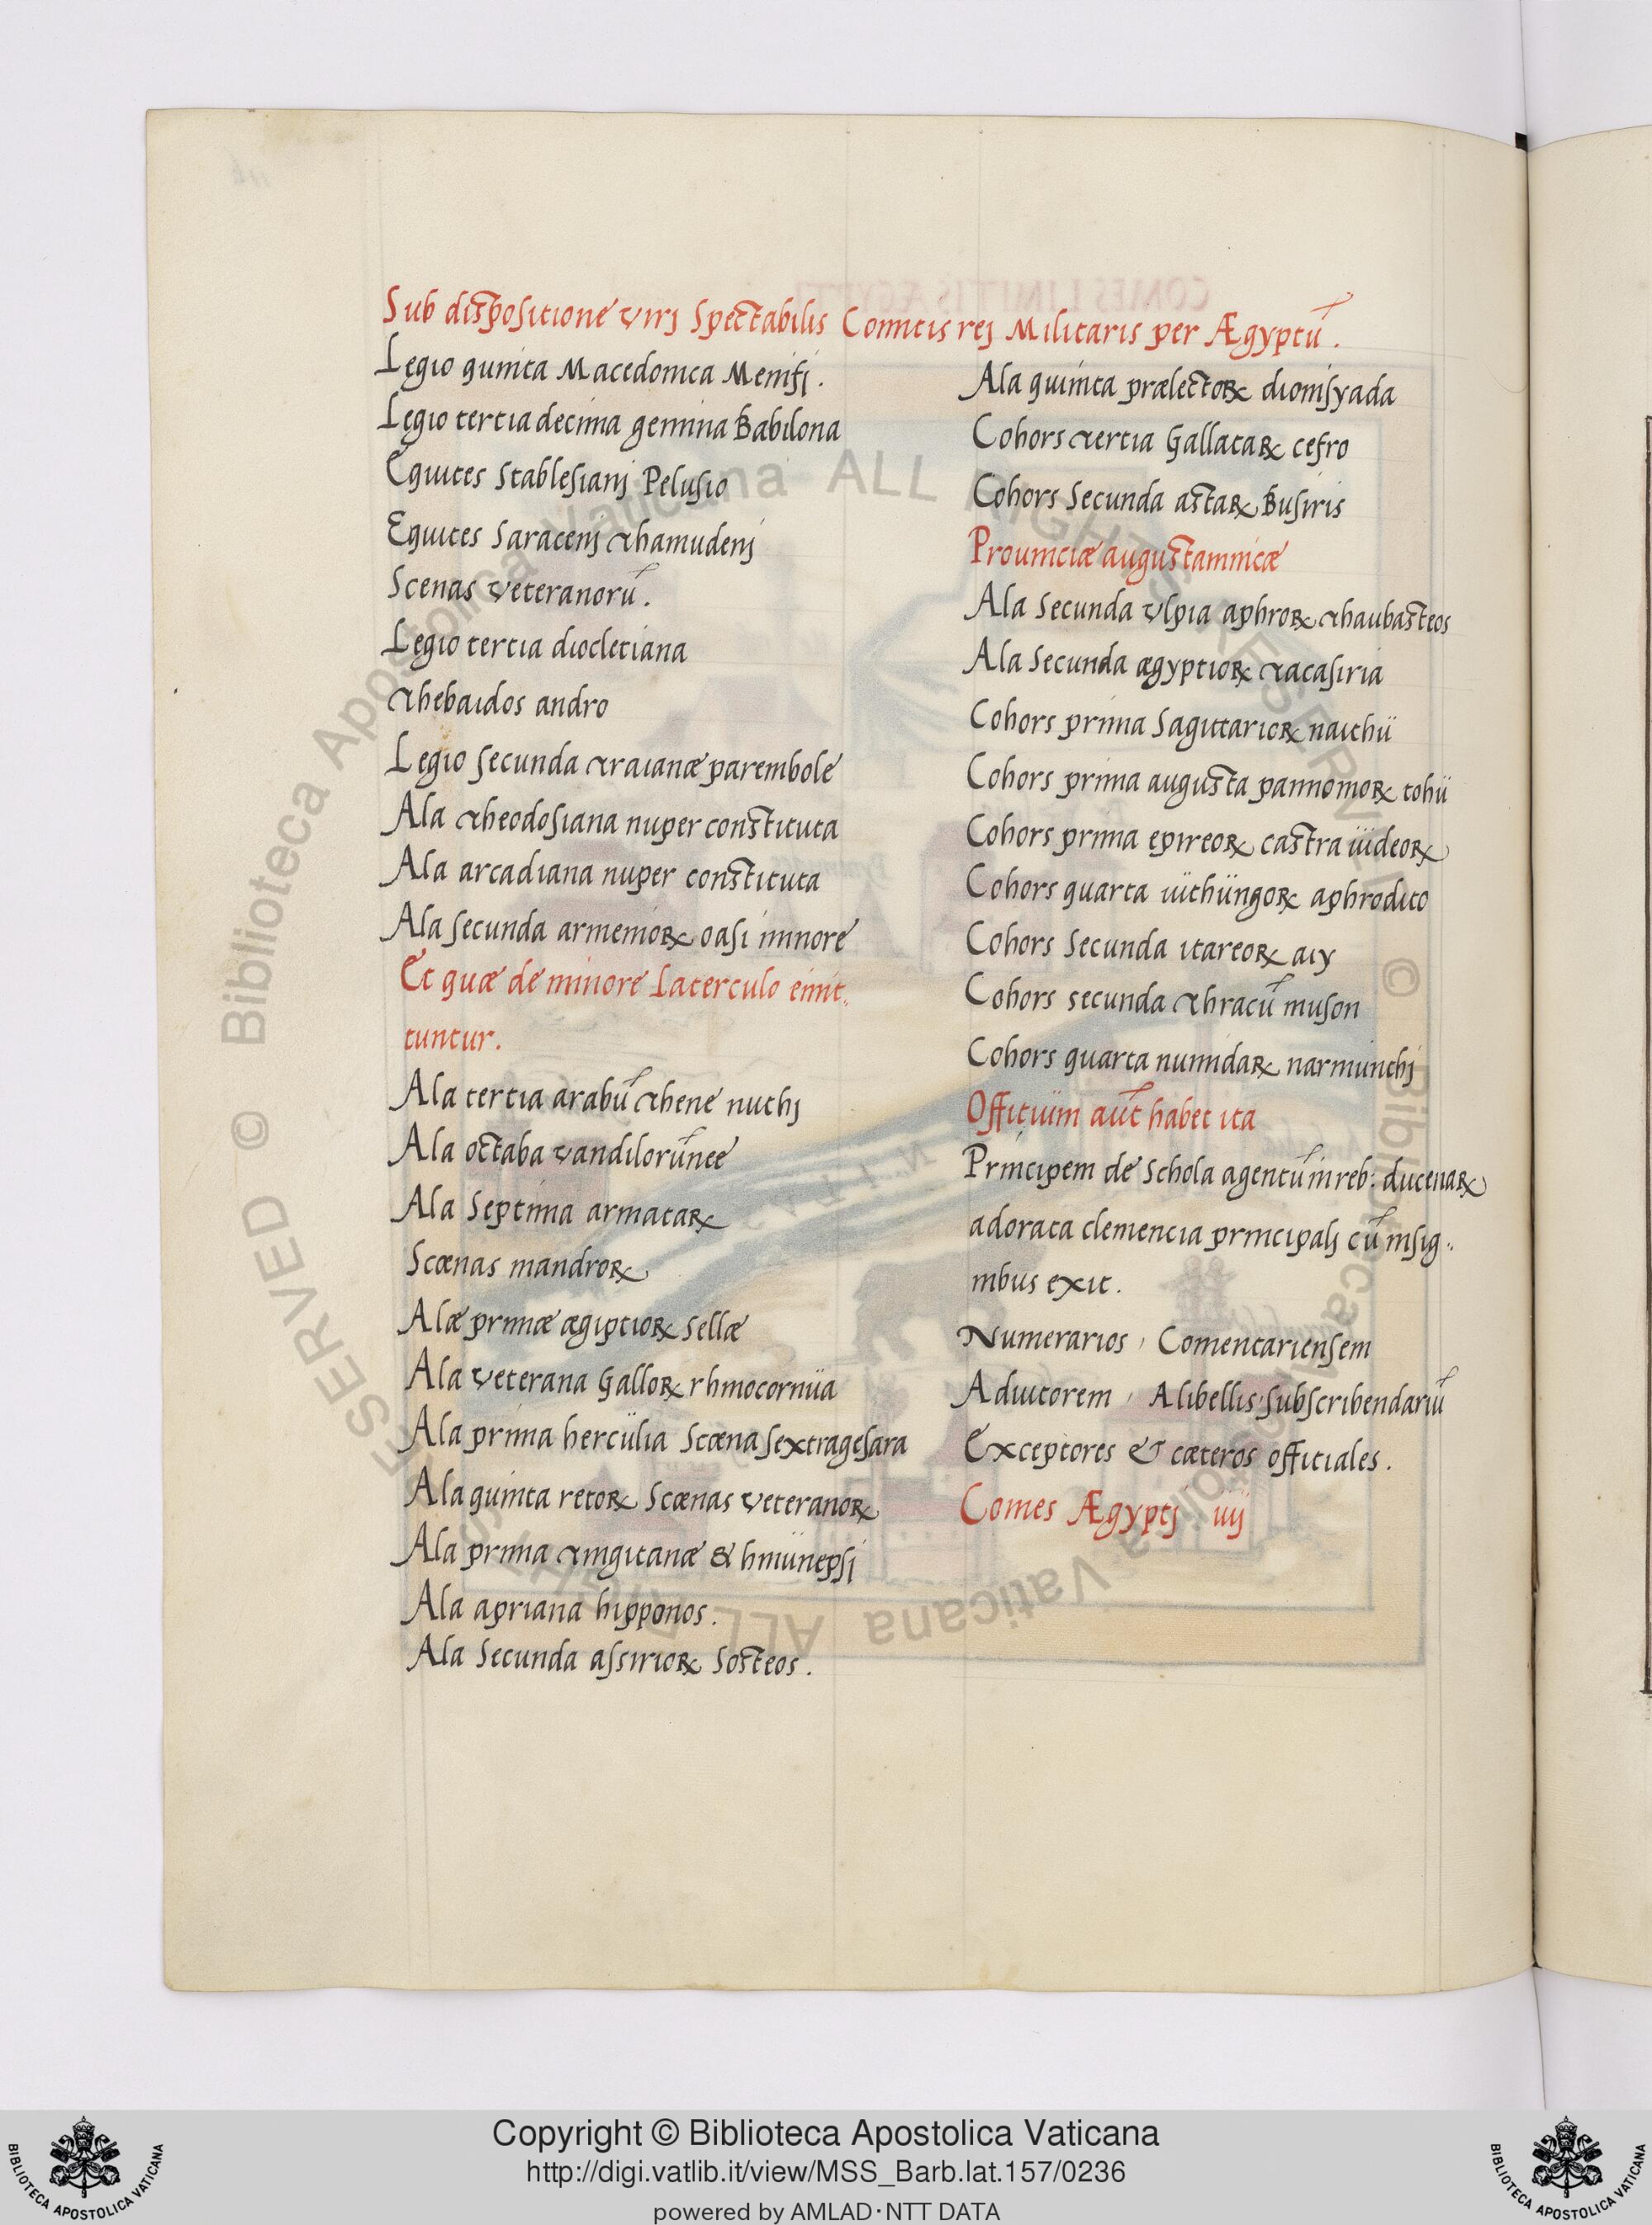 Sub dispositione virj Spectabilis Comitis rej Militaris per Ægyptū.
Legio quinta Macedonica Memfj.
Legio tertiadecima gemina Babilona
Equites Stablesianj Pelusio
Equites Saracenj Thamudenj
Scenas Veteranorū.
Legio tertia diocletiana
Thebaidos andro
Legio secunda Traianæ parembole
Ala Theodosiana nuper constituta
Ala arcadiana nuper constituta
Ala secunda armenioꝝ oasi minore
Et quæ de minore Laterculo emit..
tuntur.
Ala tertia arabū Thene nuthj
Ala octaba Vandilorū nee
Ala Septima armataꝝ
Scœnas mandroꝝ
Alæ primæ ægiptioꝝ Sellæ
Ala Veterana Galloꝝ rhinocornüa
Ala prima hercülia Scœna sextragesara
Ala quinta retoꝝ Scœnas Veteranoꝝ
Ala prima Tingitanæ & hinünepsj
Ala apriana hipponos.
Ala Secunda assirioꝝ Sosteos.
Ala quinta prælectoꝝ dionisyada
Cohors Tertia Gallataꝝ cefro
Cohors Secunda astaꝝ Busiris
Prouinciæ augustamnicæ
Ala Secunda Vlpia aphroꝝ Thaubasteos
Ala Secunda ægyptioꝝ Tacasiria
Cohors prima Sagittarioꝝ naithü
Cohors prima augusta pannonioꝝ tohü
Cohors prima epireoꝝ castra iüdeoꝝ
Cohors quarta iüthüngoꝝ aphrodito
Cohors Secunda itareoꝝ aiy
Cohors secunda Thracū muson
Cohors quarta numidaꝝ narmunthj
Offitiüm aūt habet ita
Principem de Schola agentū in reb: ducenaꝝ
adorata clementia principalj cū insig..
nibus exit.
Numerarios, Comentariensem
Adiutorem, A libellis, subscribendariū
Exceptores & cæteros offitiales.
Comes Ægyptj iiij
Copyright © Biblioteca Apostolica Vaticana
http://digi.vatlib.it/view/MSS_Barb.lat.157/0236
powered by AMLAD·NTT DATA